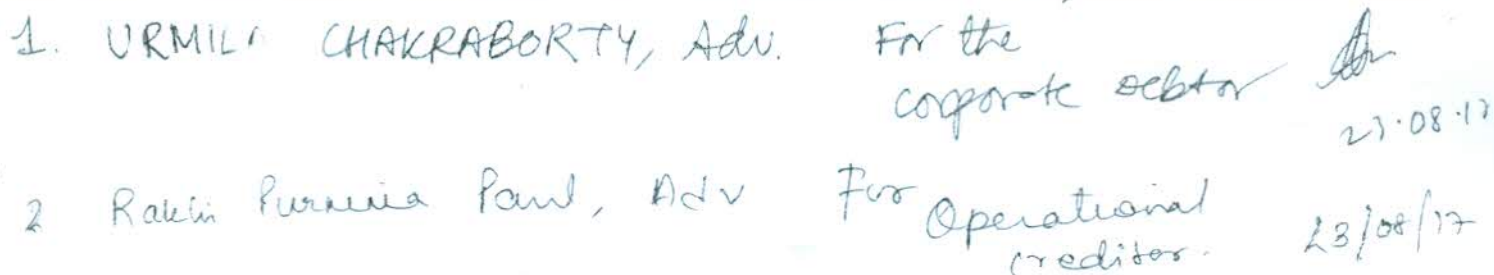 1. URMILA CHAKRABORTY, Adv. For the
corporate Debtor
23.08.17
2 Rakhi Purnima Paul, Adv For Operational
creditor. 23/08/17